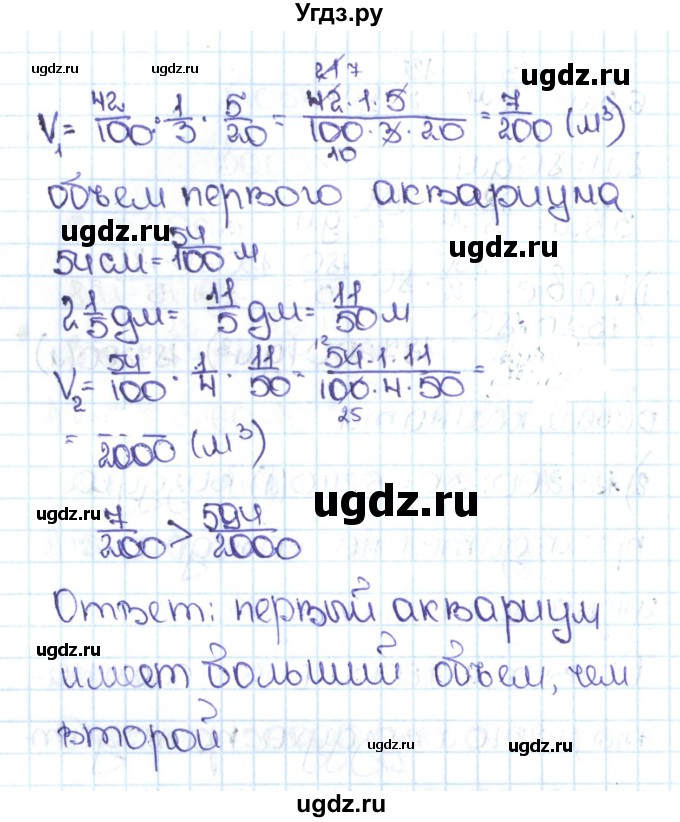 Угдз.ру
ugdz.ru
ugdz.ru
V₁ = 42/100 · 1/3 · 5/20 = 42·1·5/100·3·20 = 7/200 (м³)
21 7
10
объем первого аквариума
ugdz.ru
ugdz.ru
54 см = 54/100 м
2 1/5 дм = 11/5 дм = 11/50 м
V₂ = 54/100 · 1/4 · 11/50 = 54·1·11/100·4·50 =
25
= 2000 (м³)
ugdz.ru
ugdz.ru
7/200 > 594/2000
Ответ: первый аквариум
ugdz.ru
имеет больший объем, чем
второй
ugdz.ru
ugdz.ru
ugdz.ru